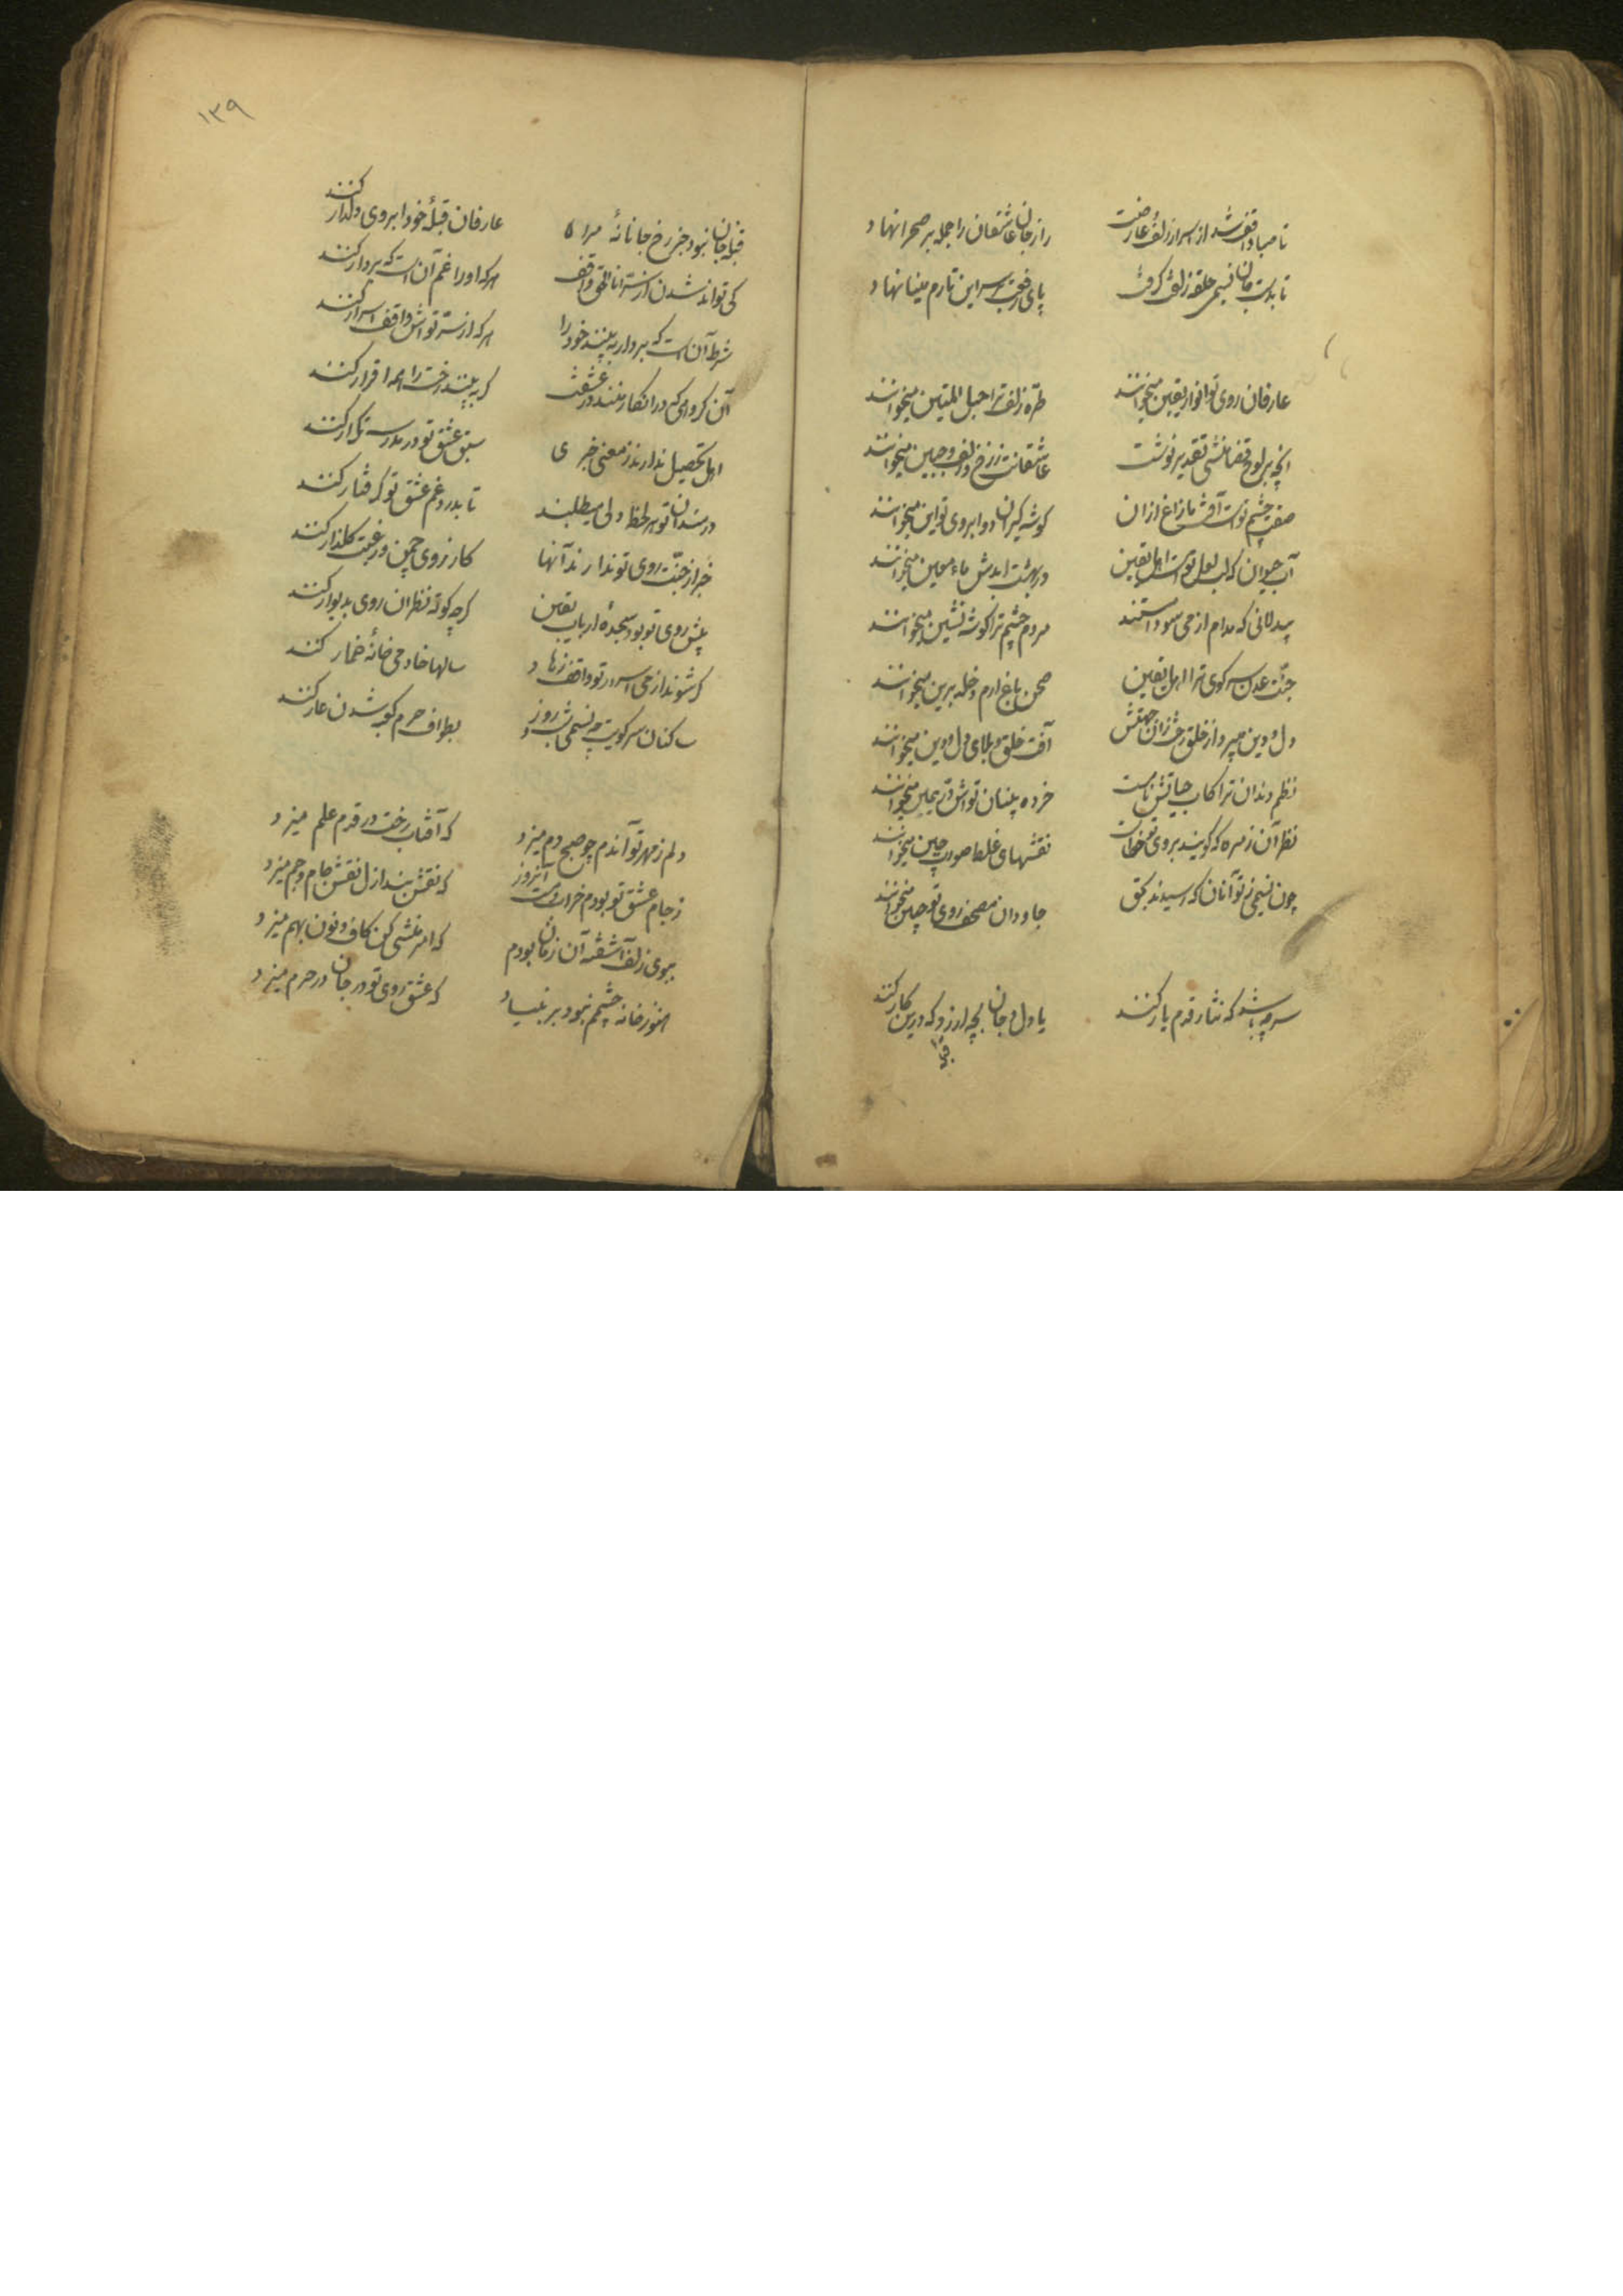 تا صبا واقف شد از اسرار زلف عارضت راز جان عاشقان را جمله بر صحرا نهاد
تا بدست جان نسیمی حلقه زلفت گرفت پای رفعت بر سر این تارم مینا نهاد
عارفان روی تو انوار یقین میخوانند طره زلف ترا حبل المتین میخوانند
انچه بر لوح قضا منشی تقدیر نوشت عاشقانت ز رخ و زلف و جبین میخوانند
صفت چشم تو است آفت ما زاغ ازان گوشه گیران دو ابروی تو این میخوانند
آب حیوان که لب لعل تو است اهل یقین در بهشت ابدش ماء معین میخوانند
بیدلانی که مدام از می سودا مستند مردم چشم ترا گوشه نشین میخوانند
جنت عدن سر کوی ترا اهل یقین صحن باغ ارم و خلد برین میخوانند
دل و دین میبرد از خلق رخت زان جهتش آفت خلق و بلای دل و دین میخوانند
نظم دندان ترا کاب حیاتش ناست خرده بینان تواش در ثمین میخوانند
نظر آن زمره که گویند بروی تو خطاست نقشهای غلط صورت چین میخوانند
چون نسیمی ز تو آنان که رسیدند بحق جاودان مصحف روی تو چنین میخوانند
سر چه باشد که نثار قدم یار کنند یا دل و جان بچه ارزد که درین کار کنند
قبله
۱۳۹
قبله جان نبود جز رخ جانانه مرا عارفان قبله خود ابروی دلدار کنند
کی تواند شدن از سر انا الحق واقف هر که او را غم آن است که بر دار کنند
شرط آن است که بردار به بیند خود را هر که از سر تواش واقف اسرار کنند
آن گروهی که در انکار منند در عشقت گر به بینند رخت را همه اقرار کنند
اهل تحصیل ندارند ز معنی خبری سبق عشق تو در مدرسه تکرار کنند
دردمندان تو هر لحظه دلی میطلبند تا بدرد و غم عشق تو گرفتار کنند
خبر از جنت روی تو ندارند آنها کارزوی چمن و رغبت گلزار کنند
پیش روی تو بود سجده ارباب یقین گرچه کوته نظران روی بدیوار کنند
گر شوند از می اسرار تو واقف زهاد سالها خادمی خانه خمار کنند
ساکنان سر کویت چو نسیمی شب و روز بطواف حرم کعبه شدن عار کنند
دلم ز مهر تو آندم چو صبح دم میزد که آفتاب رخت در قدم علم میزد
ز جام عشق تو بودم خراب و مست آنروز که نقش بند ازل نقش جام و جم میزد
ببوی زلفت آشفته آن زمان بودم که امر منشی کن کاف و نون بهم میزد
هنوز خانه چشمم نبود بر بنیاد که عشق روی تو در جان در حرم میزد